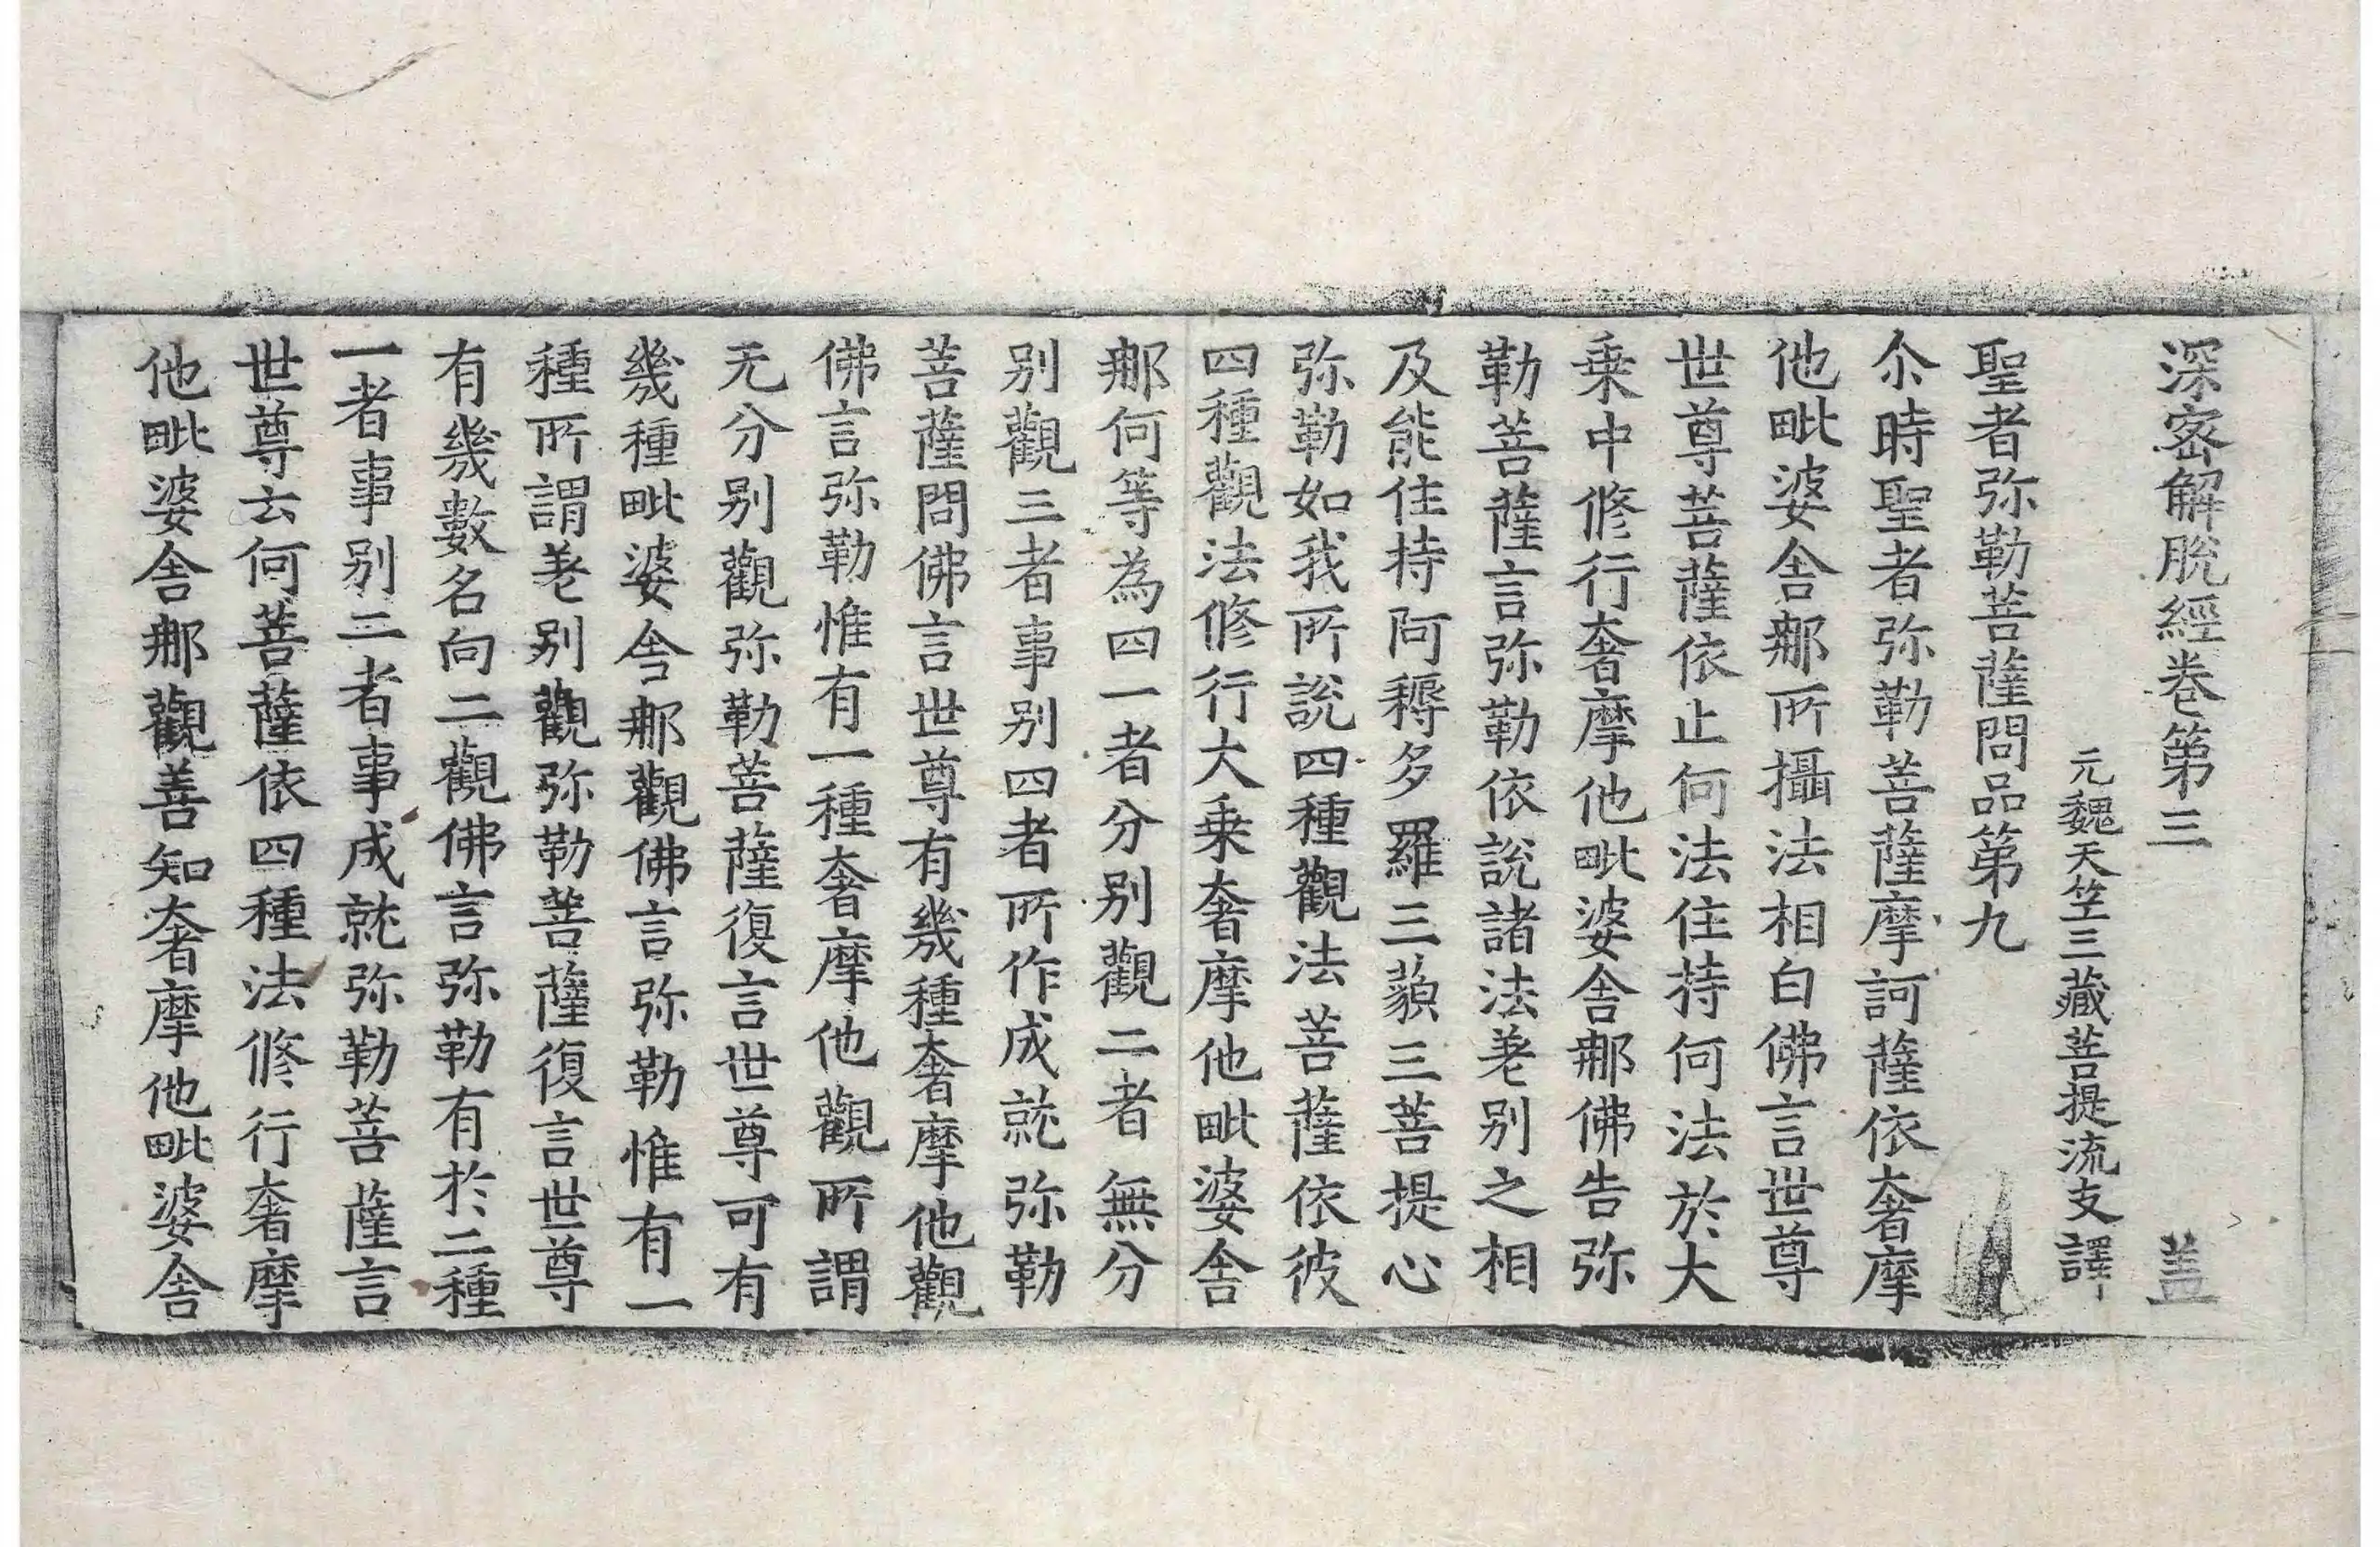 深密解脫經卷第三 盖
元魏天竺三藏菩提流支譯
聖者弥勒菩薩問品第九
尒時聖者弥勒菩薩摩訶薩依奢摩
他毗婆舎那所攝法相白佛言世尊
世尊菩薩依止何法住持何法於大
乗中修行奢摩他毗婆舎那佛告弥
勒菩薩言弥勒依說諸法差别之相
及能住持阿耨多羅三藐三菩提心
弥勒如我所說四種觀法菩薩依彼
四種觀法修行大乗奢摩他毗婆舎
那何等為四一者分别觀二者無分
别觀三者事别四者所作成就弥勒
菩薩問佛言世尊有幾種奢摩他觀
佛言弥勒惟有一種奢摩他觀所謂
无分别觀弥勒菩薩復言世尊可有
幾種毗婆舎那觀佛言弥勒惟有一
種所謂差别觀弥勒菩薩復言世尊
有幾數名向二觀佛言弥勒有於二種
一者事别二者事成就弥勒菩薩言
世尊云何菩薩依四種法修行奢摩
他毗婆舎那觀善知奢摩他毗婆舎